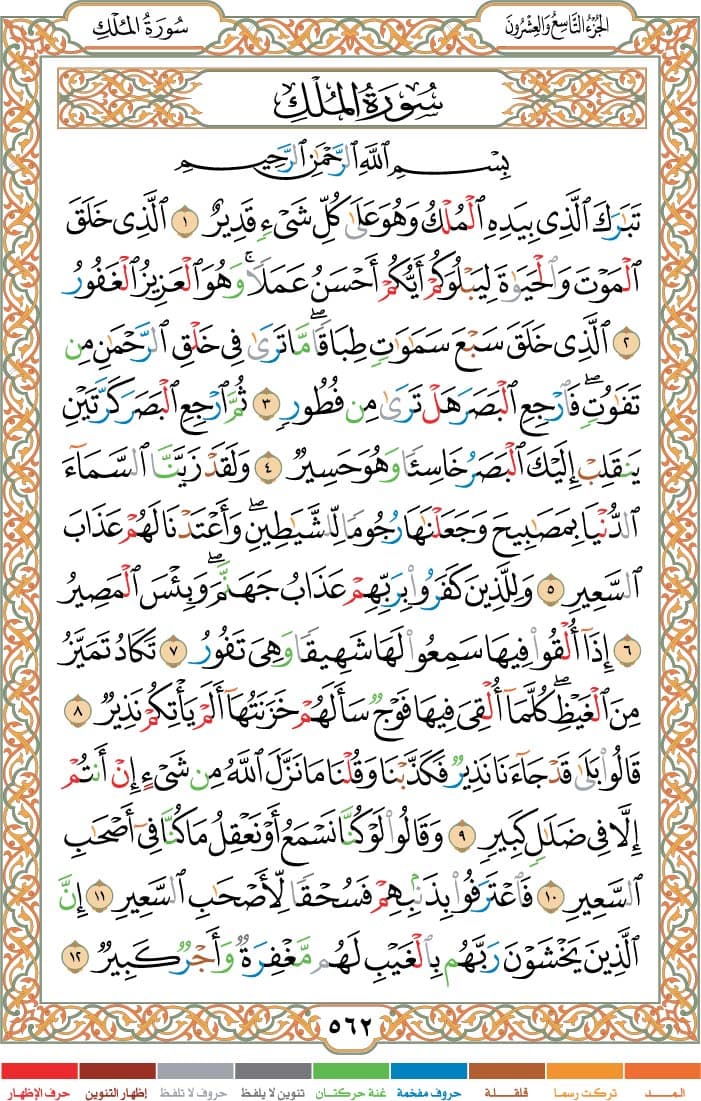 الجُزْءُ التَّاسِعُ وَالعِشْرُونَ
سُورَةُ المُلْكِ
سُورَةُ المُلْكِ
بِسْمِ اللَّهِ الرَّحْمَٰنِ الرَّحِيمِ
تَبَٰرَكَ ٱلَّذِى بِيَدِهِ ٱلْمُلْكُ وَهُوَ عَلَىٰ كُلِّ شَىْءٍۢ قَدِيرٌ ١ ٱلَّذِى خَلَقَ
ٱلْمَوْتَ وَٱلْحَيَوٰةَ لِيَبْلُوَكُمْ أَيُّكُمْ أَحْسَنُ عَمَلًۭا ۚ وَهُوَ ٱلْعَزِيزُ ٱلْغَفُورُ
٢ ٱلَّذِى خَلَقَ سَبْعَ سَمَٰوَٰتٍۢ طِبَاقًۭا ۖ مَّا تَرَىٰ فِى خَلْقِ ٱلرَّحْمَٰنِ مِن
تَفَٰوُتٍۢ ۖ فَٱرْجِعِ ٱلْبَصَرَ هَلْ تَرَىٰ مِن فُطُورٍۢ ٣ ثُمَّ ٱرْجِعِ ٱلْبَصَرَ كَرَّتَيْنِ
يَنقَلِبْ إِلَيْكَ ٱلْبَصَرُ خَاسِئًۭا وَهُوَ حَسِيرٌۭ ٤ وَلَقَدْ زَيَّنَّا ٱلسَّمَآءَ
ٱلدُّنْيَا بِمَصَٰبِيحَ وَجَعَلْنَٰهَا رُجُومًۭا لِّلشَّيَٰطِينِ ۖ وَأَعْتَدْنَا لَهُمْ عَذَابَ
ٱلسَّعِيرِ ٥ وَلِلَّذِينَ كَفَرُوا۟ بِرَبِّهِمْ عَذَابُ جَهَنَّمَ ۖ وَبِئْسَ ٱلْمَصِيرُ
٦ إِذَآ أُلْقُوا۟ فِيهَا سَمِعُوا۟ لَهَا شَهِيقًۭا وَهِىَ تَفُورُ ٧ تَكَادُ تَمَيَّزُ
مِنَ ٱلْغَيْظِ ۖ كُلَّمَآ أُلْقِىَ فِيهَا فَوْجٌۭ سَأَلَهُمْ خَزَنَتُهَآ أَلَمْ يَأْتِكُمْ نَذِيرٌۭ ٨
قَالُوا۟ بَلَىٰ قَدْ جَآءَنَا نَذِيرٌۭ فَكَذَّبْنَا وَقُلْنَا مَا نَزَّلَ ٱللَّهُ مِن شَىْءٍ إِنْ أَنتُمْ
إِلَّا فِى ضَلَٰلٍۢ كَبِيرٍۢ ٩ وَقَالُوا۟ لَوْ كُنَّا نَسْمَعُ أَوْ نَعْقِلُ مَا كُنَّا فِىٓ أَصْحَٰبِ
ٱلسَّعِيرِ ١٠ فَٱعْتَرَفُوا۟ بِذَنۢبِهِمْ فَسُحْقًۭا لِّأَصْحَٰبِ ٱلسَّعِيرِ ١١ إِنَّ
ٱلَّذِينَ يَخْشَوْنَ رَبَّهُم بِٱلْغَيْبِ لَهُم مَّغْفِرَةٌۭ وَأَجْرٌۭ كَبِيرٌۭ ١٢
٥٦٢
المـــد تركت رسما قلقـــلة حروف مفخمة غنة حركتان تنوين لا يلفظ حروف لا تلفظ إظهار التنوين حرف الإظهار